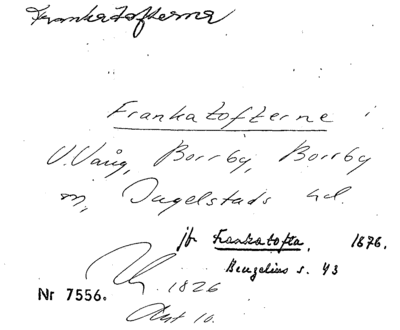 Frankatofterne
Frankatofterne i
V. Vång, Borrby, Borrby
sn, Ingelstads hd.
jfr Frankatofta, 1876.
Bengelius s. 43
1826
Nr 7556.
Akt 10.